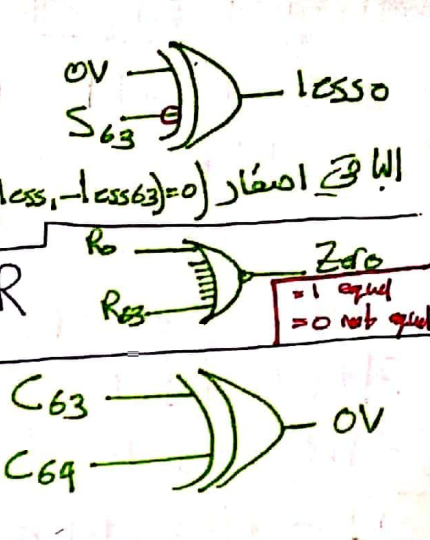 OV
S63
less0
الباقي اصفار (less1-less63)=0)
R0
R63
Zero
R
=1 equal
=0 not equal
C63
C64
OV